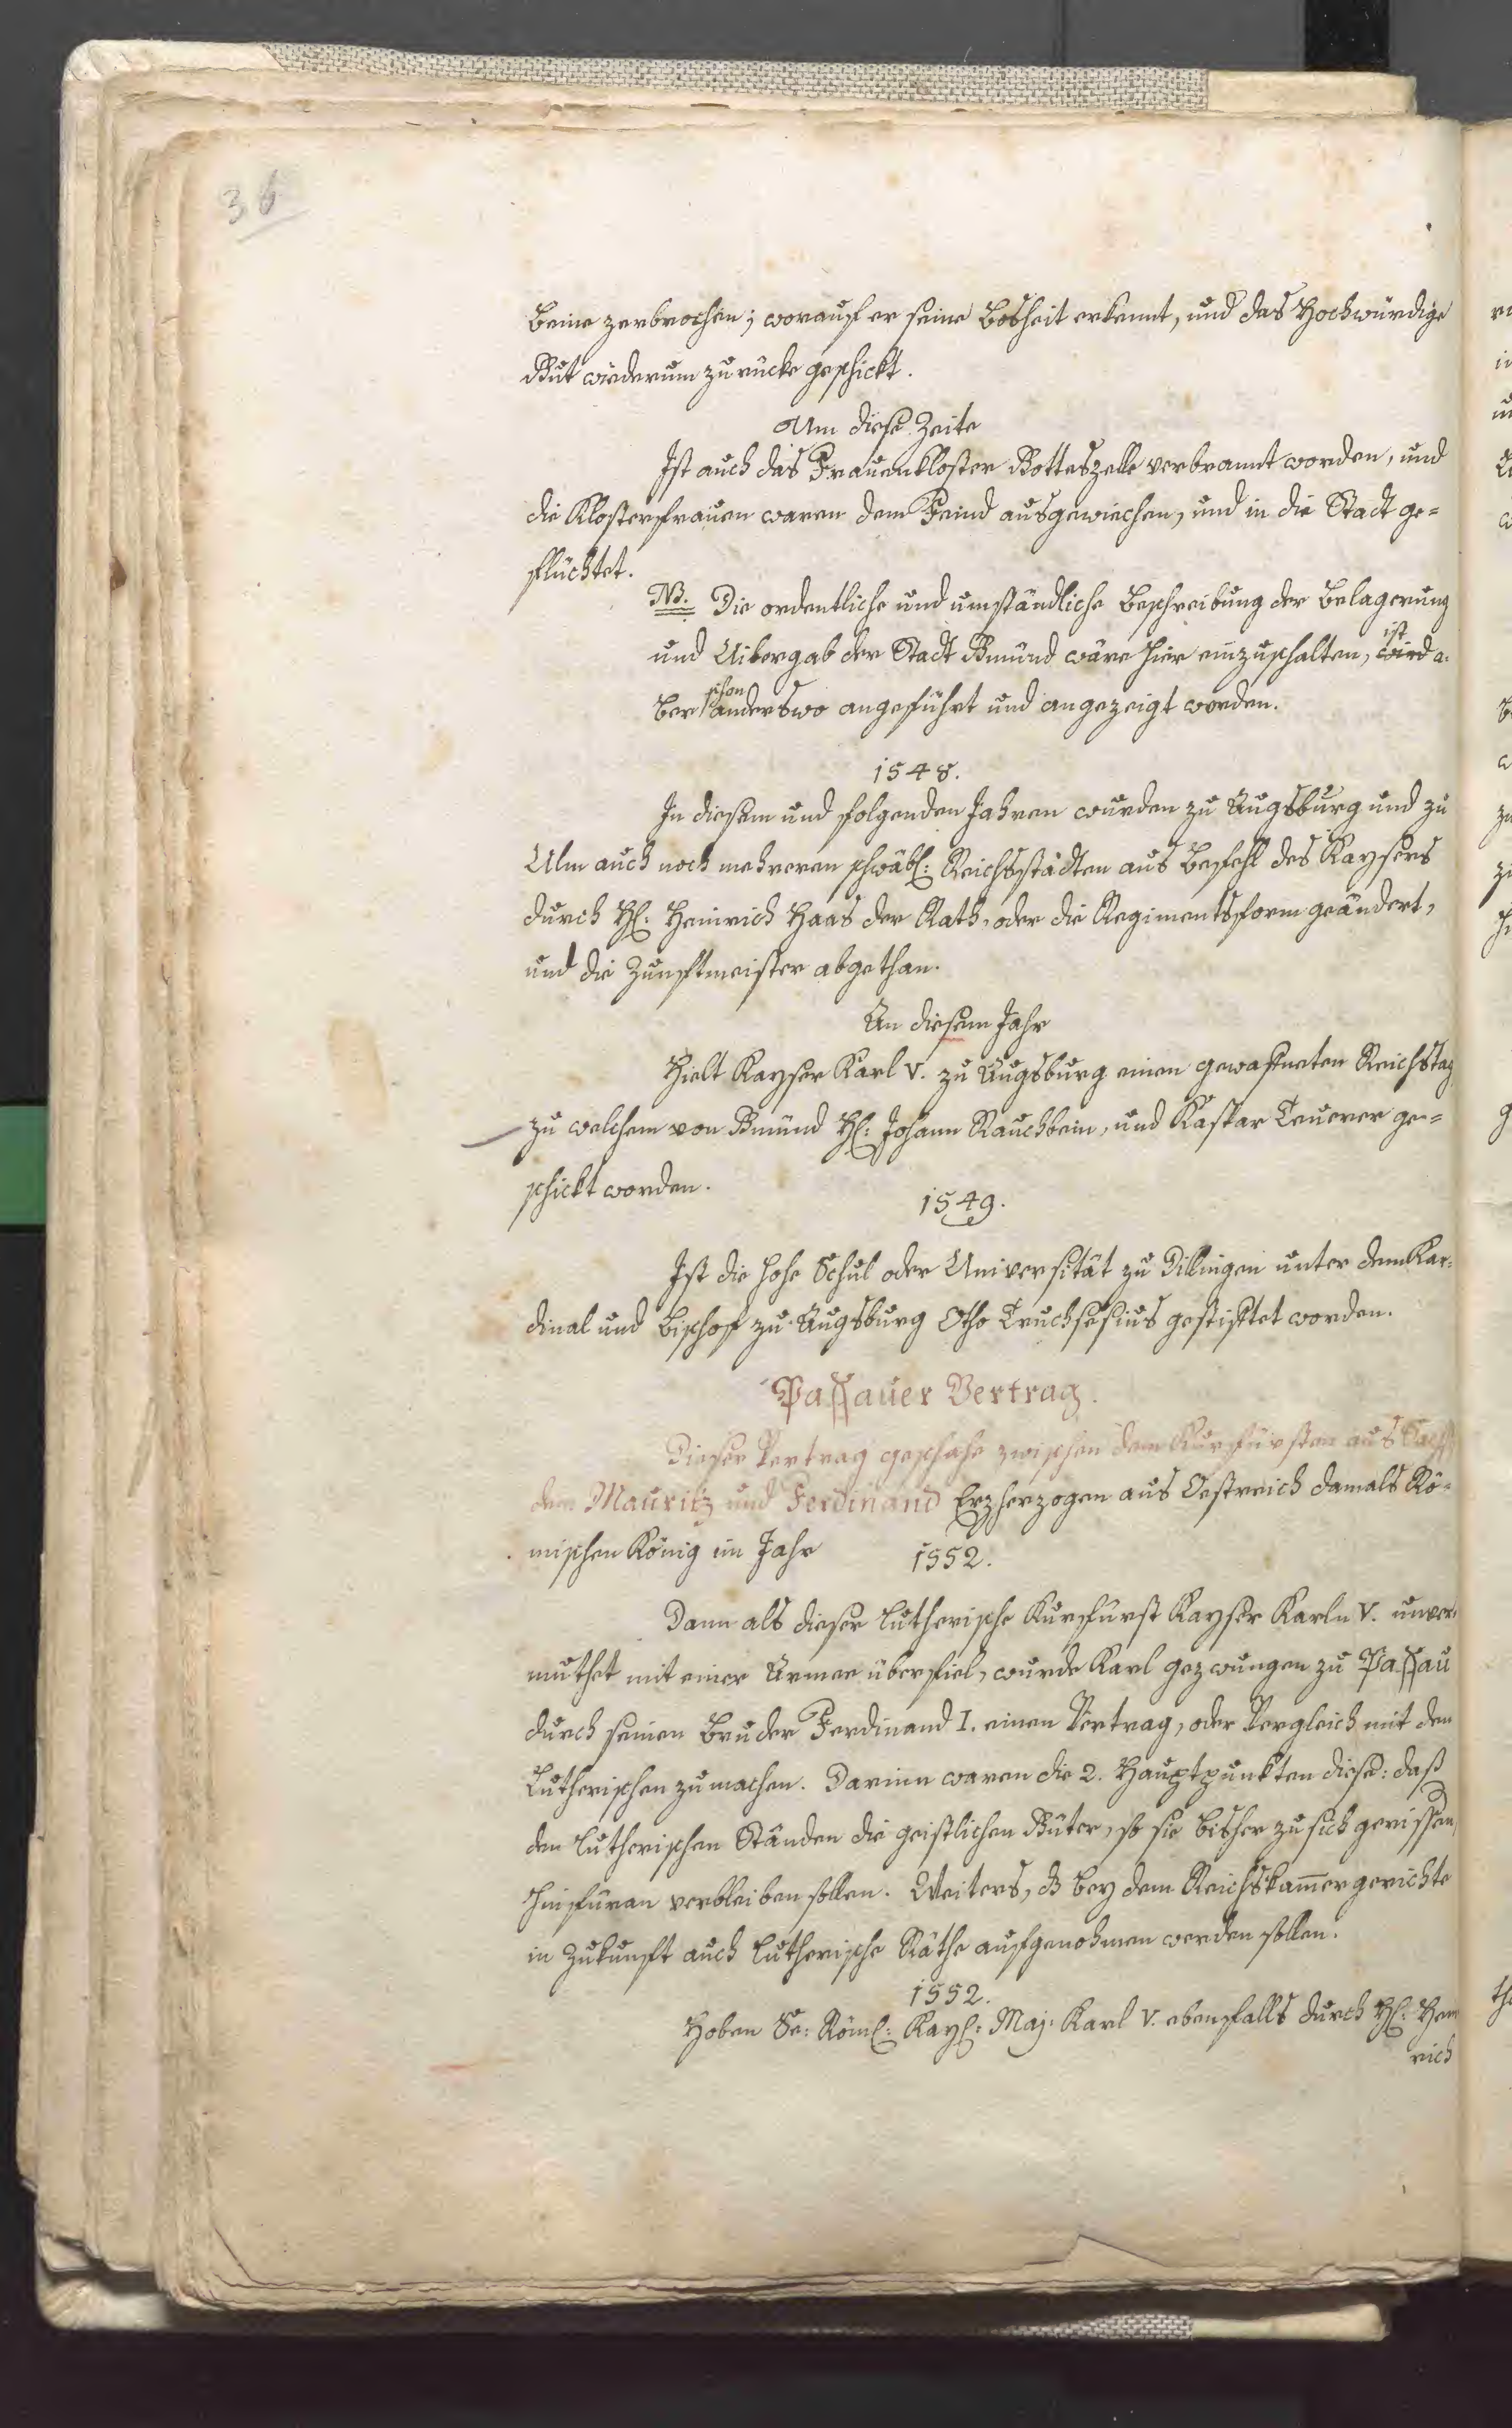 36
Beine zerbrochen; worauf er seine Bosheit erkennt, und das Hochwürdige
Gut wiederum zurücke geschickt.
Um diese Zeite
Ist auch das Frauenkloster Gotteszelle verbrannt worden, und
die Klosterfrauen waren dem Feind ausgewichen, und in die Stadt ge=
flüchtet.
NB. Die ordentliche und umständliche Beschreibung der Belagerung
und Uibergab der Stadt Gmünd wäre hier einzuschalten, wird ist a-
ber schon anderswo angeführt und angezeigt worden.
1548.
In diesem und folgenden Jahren wurden zu Augsburg und zu
Ulm auch noch mehreren schwäb: Reichsstädten aus Befehl des Kaysers
durch H: Heinrich Haas der Rath, oder die Regimentsform geändert,
und die Zunftmeister abgethan.
An diesem Jahr
Hielt Kayser Karl V. zu Augsburg einen gewafneten Reichstag
zu welchem von Gmünd H: Johann Rauchbein, und Kaspar Teurer ge=
schickt worden.
1549.
Ist die hohe Schul oder Universität zu Dillingen unter dem Kar-
dinal und Bischof zu Augsburg Otho Truchsesius gestiftet worden.
Passauer Vertrag.
Dieser Vertrag geschahe zwischen dem Kurfürsten aus Sach
den Mauritz und Ferdinand Erzherzogen aus Oestreich damals Rö-
mischen König im Jahr
1552.
Dann als dieser Lutherische Kurfürst Kayser Karln V. unver-
muthet mit einer Armee überfiel, wurde Karl gezwungen zu Passau
durch seinen Bruder Ferdinand I. einen Vertrag, oder Vergleich mit den
Lutherischen zu machen. Darinn waren die 2. Hauptpunkten diese: daß
den Lutherischen Ständen die geistlichen Güter, so sie bisher zu sich gerissen,
hinfüran verbleiben sollen. Weiters, dß bey dem Reichskam̄ergerichte
in Zukunft auch Lutherische Räthe aufgenohmen werden sollen.
1552.
Hoben Se: Röm: Kay: Maj: Karl V. ebenfalls durch H: Hein
rich